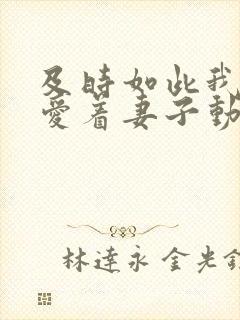 及時如此我
愛着妻子動
林達永 金光鎬